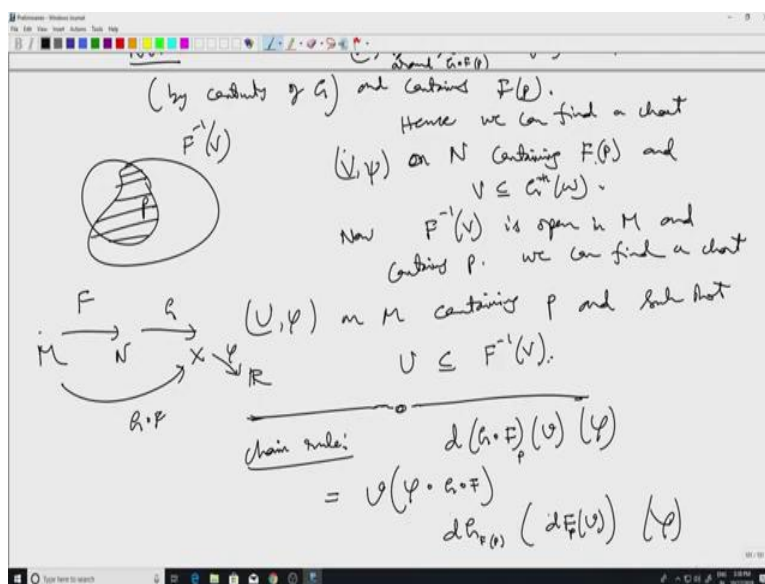 Preliminaries - Windows Journal
File Edit View Insert Actions Tools Help
around G∘F(p)
(by continuity of G) and contains F(p).
Hence we can find a chart
F⁻¹(V)
(V,ψ) on N containing F(p) and
V ⊆ G⁻¹(W).
P
Now F⁻¹(V) is open in M and
contains p. we can find a chart
F G
(U,φ) on M containing p and such that
M N X φ ℝ
U ⊆ F⁻¹(V).
G∘F
chain rule: d(G∘F)_p (v) (φ)
= v(φ∘G∘F)
dG_F(p) (dF_p(v)) (φ)
Type here to search
ENG 3:38 PM